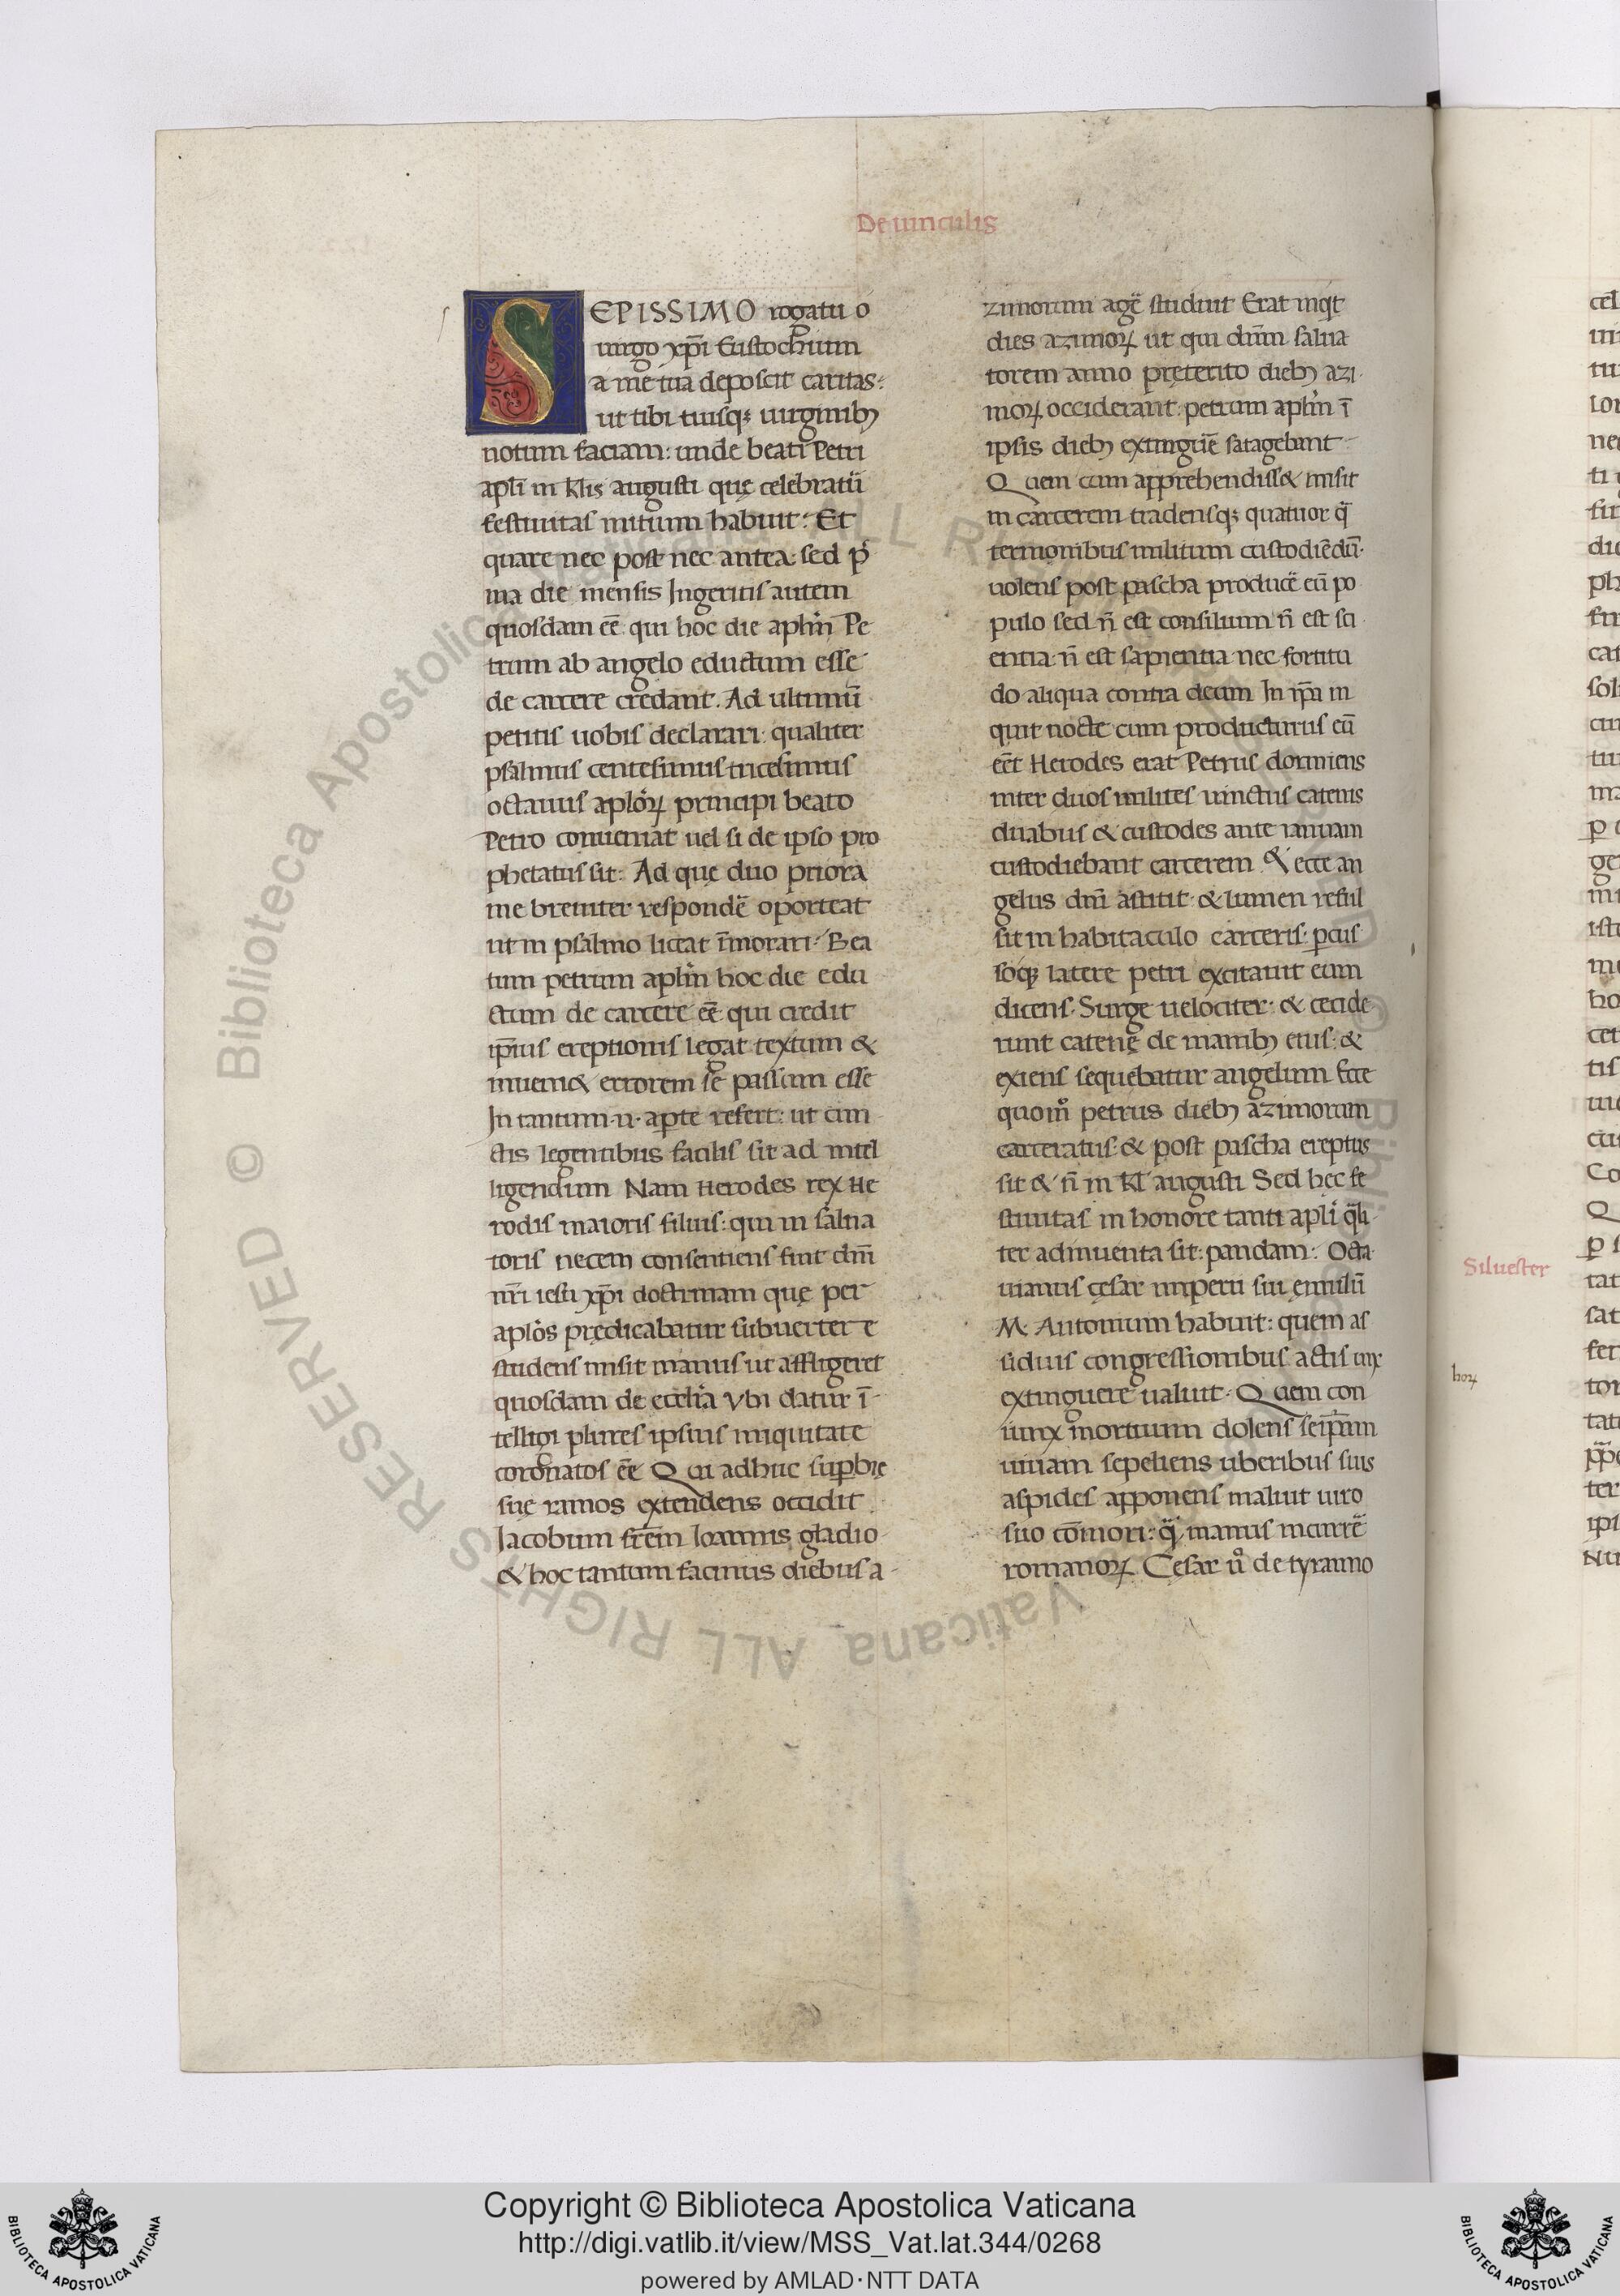 De uinculis
SEPISSIMO rogatu o
uirgo xp̄i Eustochium
a me tua deposcit caritas:
ut tibi tuisq; uirginib;
notum faciam: unde beati Petri
apl̄i in kl̄is augusti que celebratur̄
festiuitas initium habuit: Et
quare nec post nec antea: sed p̄
ma die mensis Ingeritis autem
quosdam eē qui hoc die apl̄m Pe
trum ab angelo eductum esse
de carcere credant. Ad ultimū
petitis uobis declarari: qualiter
psalmus centesimus tricesimus
octauus aploꝝ principi beato
Petro conueniat uel si de ipso pro
phetatus sit: Ad que duo priora
me breuiter respondē oporteat
ut in psalmo liceat īmorari: Bea
tum petrum apl̄m hoc die edu
ctum de carcere eē qui credit
ip̄ius ereptionis legat textum &
inueni& errorem se passum esse
In tantum.n. aperte refert: ut cun
ctis legentibus facilis sit ad intel
ligendum Nam Herodes rex He
rodis maioris filius: qui in salua
toris necem consentiens fuit dn̄i
nr̄i iesu xp̄i doctrinam que per
aplos predicabatur subuertere
studens misit manus ut affligeret
quosdam de eccl̄ia Vbi datur ī
telligi plures ipsius iniquitate
coronatos eē Qui adhuc superbie
sue ramos extendens occidit
Jacobum frēm Ioannis gladio
& hoc tantum facinus diebus a
zimorum agē studuit Erat inq̄t
dies azimoꝝ ut qui dn̄m salua
torem anno preterito dieb; azi
moꝝ occiderant: petrum apl̄m ī
ipsis dieb; extinguē satagebant
Quem cum apprehendiss& misit
in carcerem tradensq; quatuor q̄
ternionibus militum custodiēdū.
uolens post pascha producē eū po
pulo sed n̄ est consilium n̄ est sci
entia. n̄ est sapientia nec fortitu
do aliqua contra deum In ip̄a in
quit nocte cum producturus eū
eēt Herodes erat Petrus dormiens
inter duos milites uinctus catenis
duabus & custodes ante ianuam
custodiebant carcerem & ecce an
gelus dn̄i astitit & lumen reful
sit in habitaculo carceris. percus
soq; latere petri excitauit eum
dicens. Surge uelociter: & cecide
runt catene de manib; eius: &
exiens sequebatur angelum Ecce
quom̊ petrus dieb; azimorum
carceratus: & post pascha ereptus
sit & n̄ in kl̄ augusti Sed hec fe
stiuitas in honore tanti apl̄i q̄li
ter adinuenta sit: pandam: Octa
uianus cesar imperii sui emulū
M. Antonium habuit: quem as
siduis congressionibus actis uix
extinguere ualuit. Quem con
iunx mortuum dolens seip̄am
uiuam sepeliens uberibus suis
aspides apponens maluit uiro
suo cōmori: q̄ manus incurrē
romanoꝝ Cesar u̇o de tyranno
Siluester
hoꝝ
© Biblioteca Apostolica Vaticana ALL RIGHTS RESERVED © Biblioteca Apostolica Vaticana ALL RIGHTS RESERVED
Copyright © Biblioteca Apostolica Vaticana
http://digi.vatlib.it/view/MSS_Vat.lat.344/0268
powered by AMLAD·NTT DATA
BIBLIOTECA APOSTOLICA VATICANA
BIBLIOTECA APOSTOLICA VATICANA